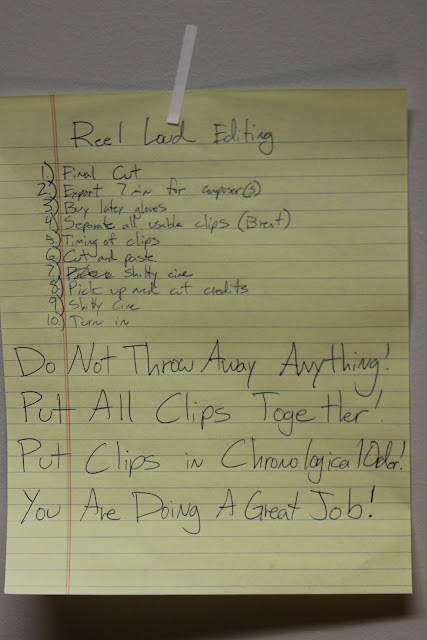 Reel Loud Editing
1.) Final Cut
2.) Export 7 min for composer(s)
3.) Buy latex gloves
4.) Separate all usible clips (Brent)
5.) Timing of clips
6.) Cut and paste
7.) shitty cine
8.) Pick up and cut credits
9.) Shitty Cine
10.) Turn in
Do Not Throw Away Anything!
Put All Clips Together!
Put Clips in Chronological Order!
You Are Doing A Great Job!